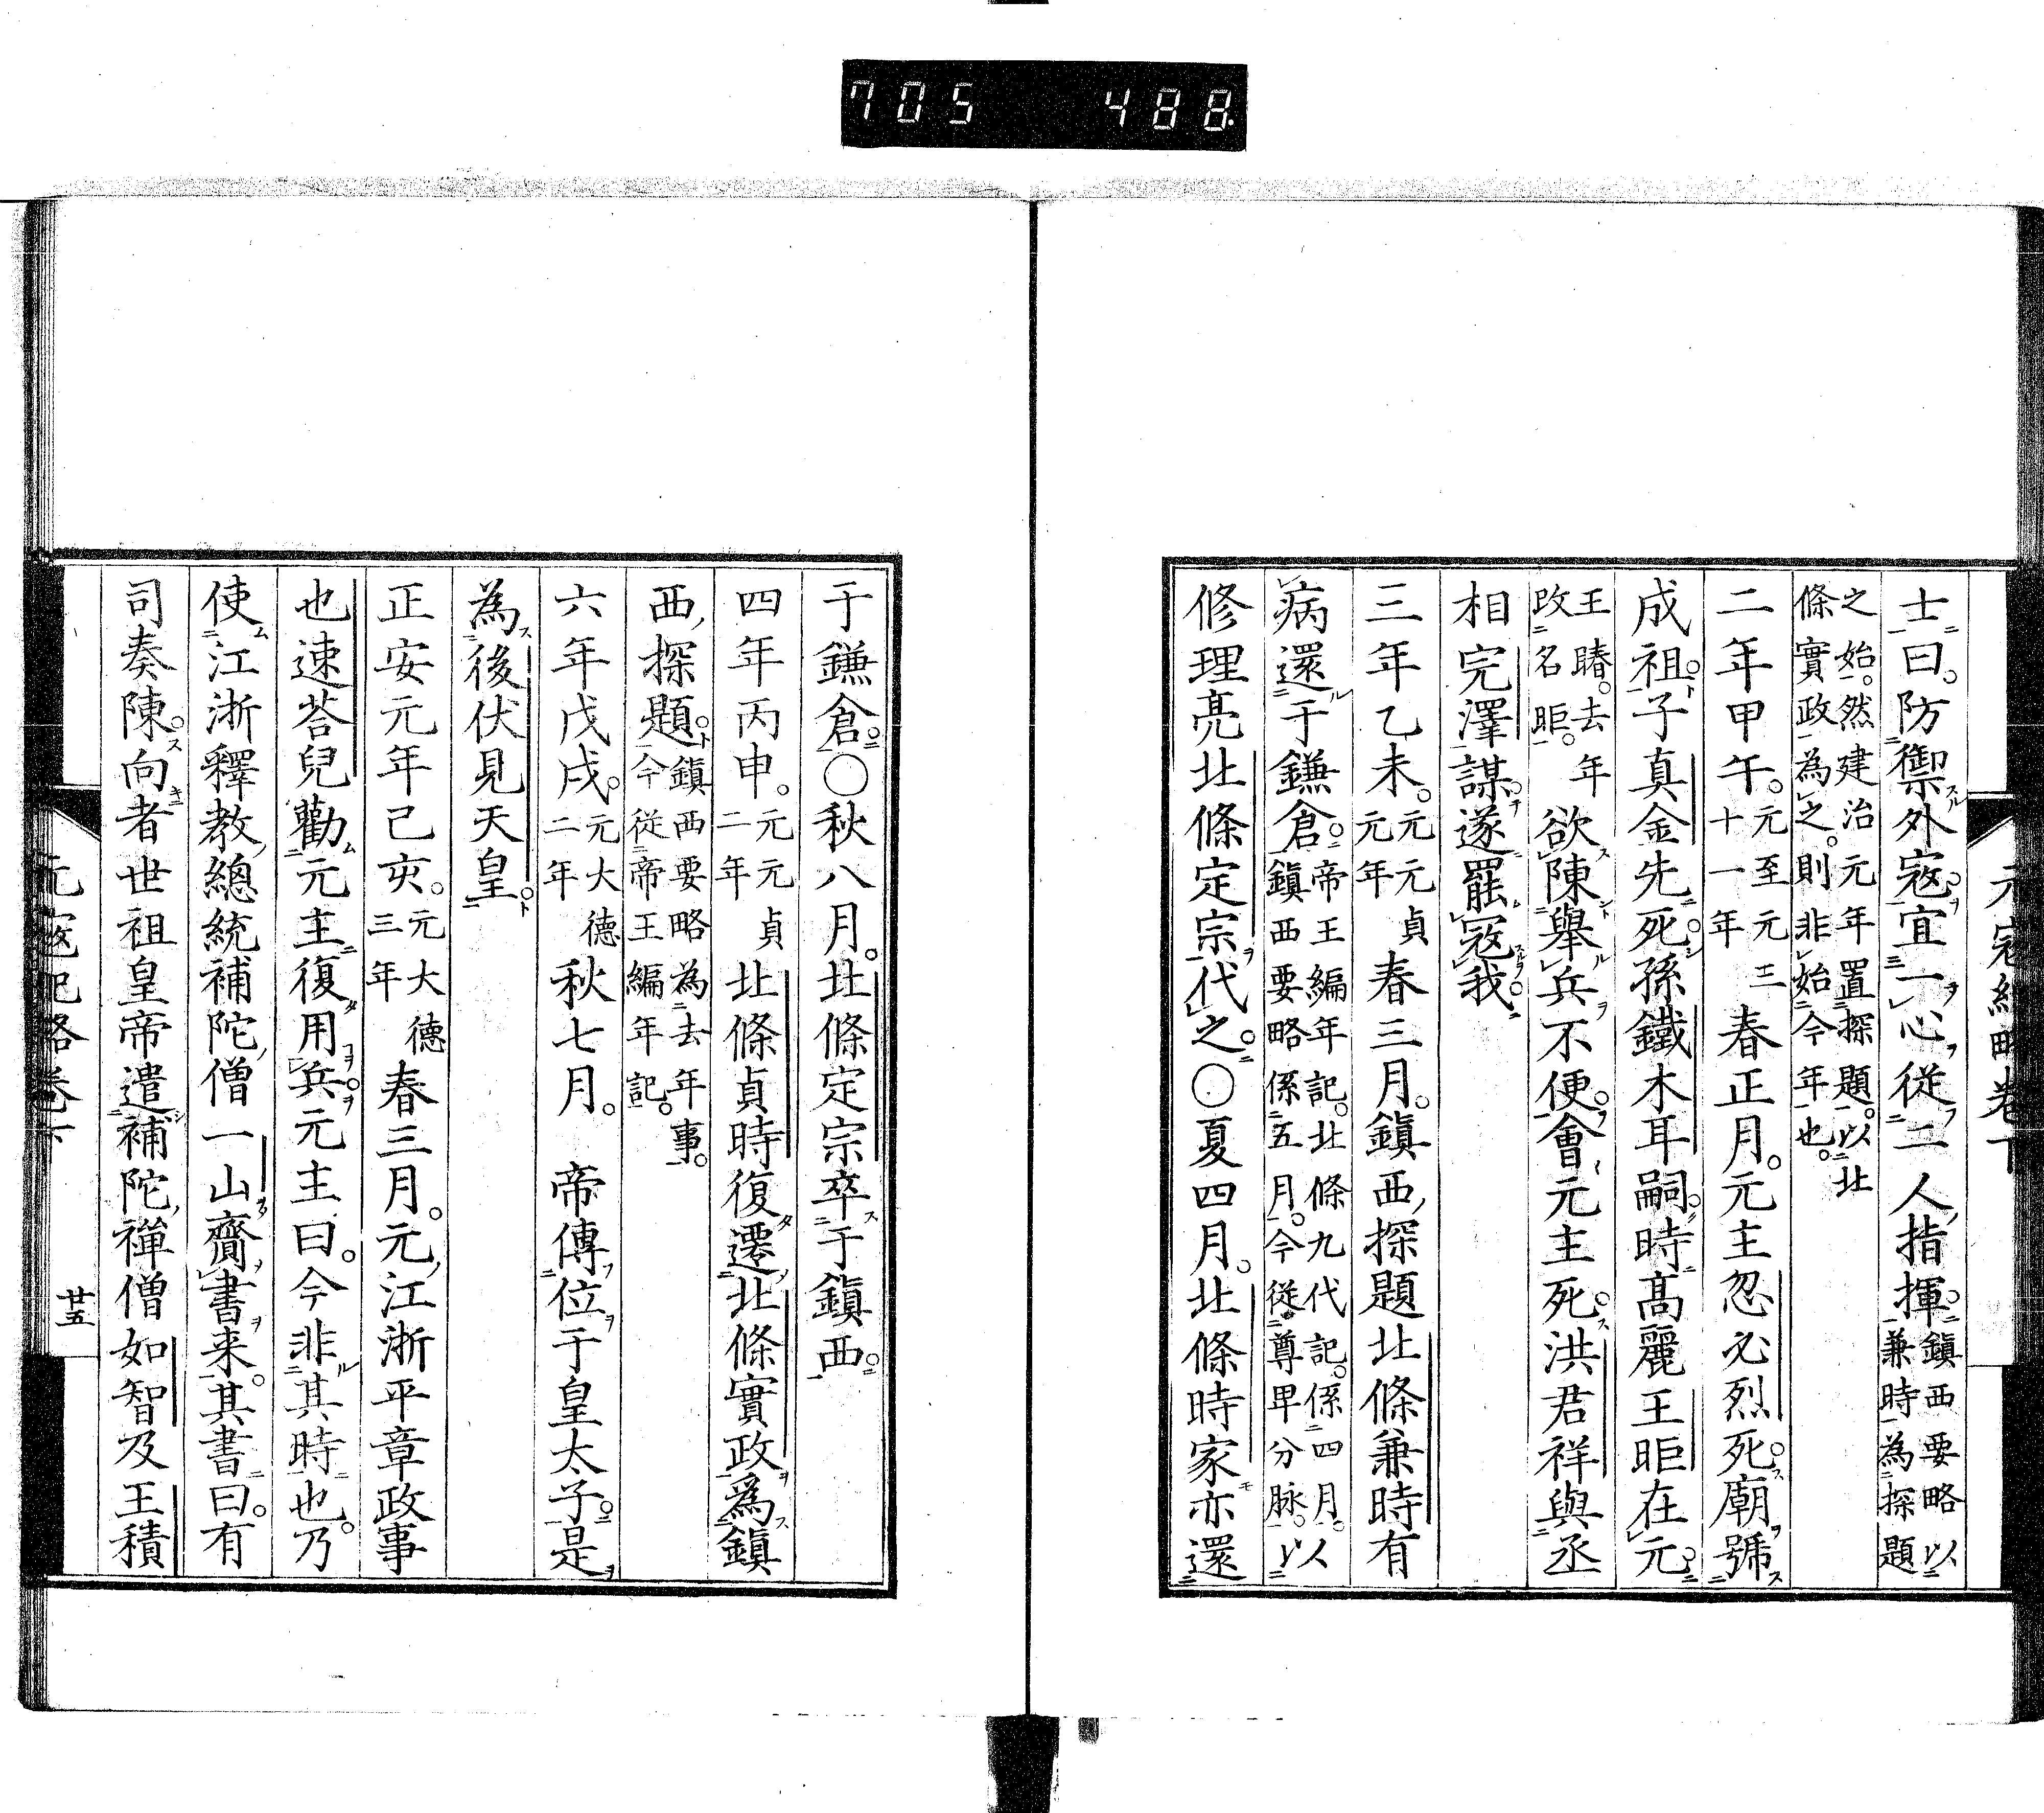 705 488
元寇紀略卷下
士曰。防禦外寇。宜一心從二人指揮。鎮西要略以兼時為探題
之始。然建治元年置探題。以北條實政為之。則非始今年也。
二年甲午。元至元三十一年春正月。元主忽必烈死。廟號
成祖。子真金先死。孫鐵木耳嗣。時高麗王昛在元。
王賰。去年改名昛。欲陳舉兵不便。會元主死。洪君祥與丞
相完澤謀。遂罷寇我。
三年乙未。元元貞元年春三月。鎮西探題北條兼時有
病還于鎌倉。帝王編年記。北條九代記。係四月。以鎮西要略係五月。今從尊卑分脉。以
修理亮北條定宗代之。〇夏四月。北條時家亦還
于鎌倉。〇秋八月。北條定宗卒于鎮西。
四年丙申。元元貞二年北條貞時復遷北條實政為鎮
西探題。鎮西要略為去年事。今從帝王編年記。
六年戊戌。元大德二年秋七月。帝傳位于皇太子。是
為後伏見天皇。
正安元年己亥。元大德三年春三月。元江浙平章政事
也速荅兒勸元主復用兵。元主曰。今非其時也。乃
使江浙釋教總統補陀僧一山齎書来。其書曰。有
司奏陳。向者世祖皇帝遣補陀禪僧如智及王積
元寇紀略卷下
廿五